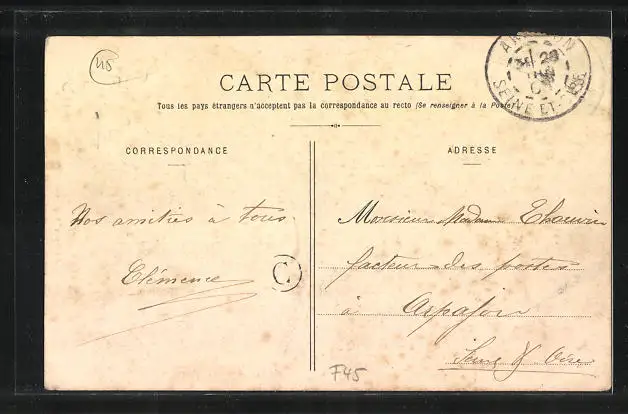 45
CARTE POSTALE
Tous les pays étrangers n'acceptent pas la correspondance au recto (Se renseigner à la Poste)
CORRESPONDANCE
ADRESSE
Nos amitiés à tous.
Clémence
C
Monsieur Madame
facteur des postes
à Arpajon
Seine & Oise
F45
SEINE-ET-OISE